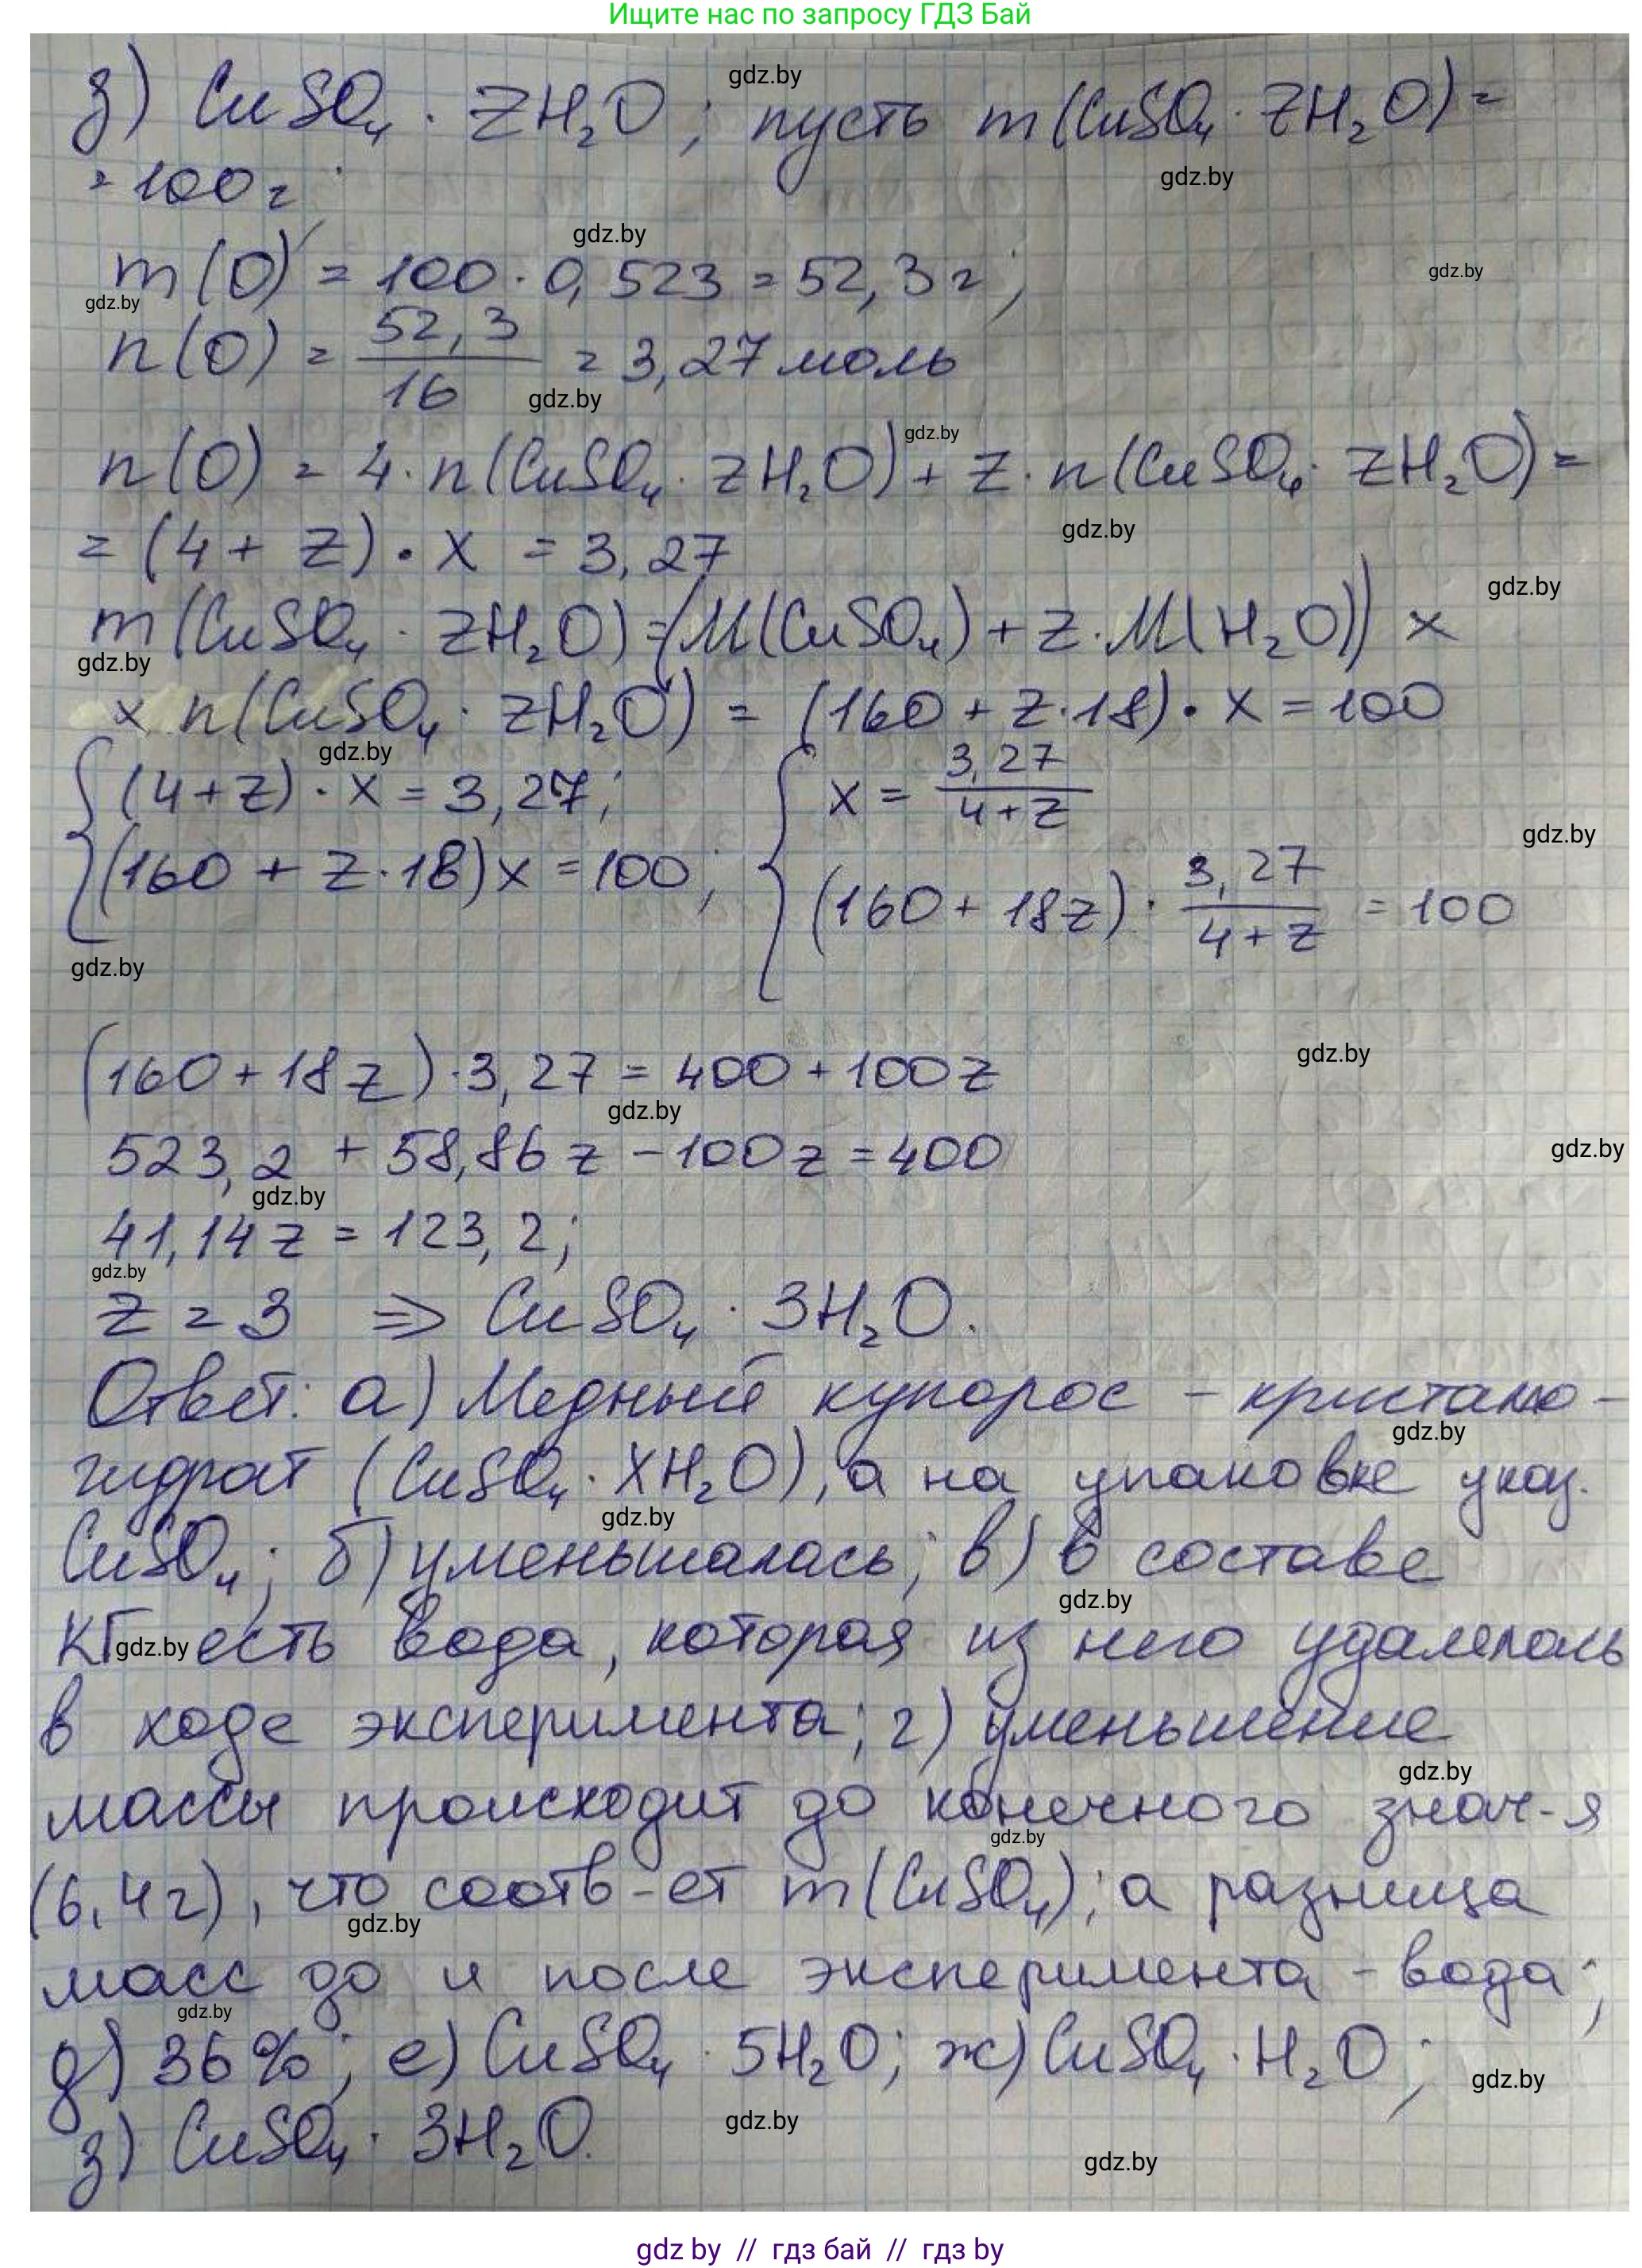 Ищите нас по запросу ГДЗ Бай
з) CuSO₄ · ZH₂O; пусть m(CuSO₄ · ZH₂O) =
gdz.by
= 100 г;
gdz.by
gdz.by
m(O) = 100 · 0,523 = 52,3 г;
gdz.by
gdz.by
n(O) = 52,3/16 = 3,27 моль
gdz.by
gdz.by
n(O) = 4 · n(CuSO₄ · ZH₂O) + Z · n(CuSO₄ · ZH₂O) =
gdz.by
= (4 + Z) · x = 3,27
gdz.by
m(CuSO₄ · ZH₂O) = (M(CuSO₄) + Z · M(H₂O)) ×
gdz.by
× n(CuSO₄ · ZH₂O) = (160 + Z · 18) · x = 100
gdz.by
{ (4 + Z) · x = 3,27; { x = 3,27/(4 + Z)
gdz.by
(160 + Z · 18) x = 100; (160 + 18Z) · 3,27/(4 + Z) = 100
gdz.by
gdz.by
(160 + 18Z) · 3,27 = 400 + 100Z
gdz.by
gdz.by
523,2 + 58,86Z − 100Z = 400
gdz.by
41,14Z = 123,2;
gdz.by
Z = 3 ⇒ CuSO₄ · 3H₂O.
Ответ: а) Медный купорос – кристалло-
gdz.by
гидрат (CuSO₄ · XH₂O), а на упаковке указ.
gdz.by
CuSO₄; б) уменьшалась; в) в составе
gdz.by
КГ есть вода, которая из него удалялась
gdz.by
в ходе эксперимента; г) уменьшение
gdz.by
массы происходит до конечного знач-я
gdz.by
(6,4 г), что соотв-ет m(CuSO₄); а разница
gdz.by
масс до и после эксперимента – вода;
gdz.by
д) 36%; е) CuSO₄ · 5H₂O; ж) CuSO₄ · H₂O;
gdz.by
з) CuSO₄ · 3H₂O.
gdz.by
gdz.by
gdz by // гдз бай // гдз by